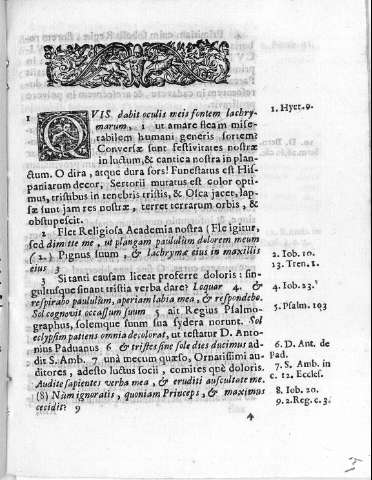 1 QVIS dabit oculis meis fontem lachry-
marum, 1 ut amare fleam mise-
rabilem humani generis sortem?
Conversæ sunt festivitates nostræ
in luctum, & cantica nostra in plan-
ctum. O dira, atque dura sors! Funestatus est His-
paniarum decor, Sertorii mutatus est color opti-
mus, tristibus in tenebris tristis, & Osca jacet, lap-
sæ sunt jam res nostræ, terret terrarum orbis, &
obstupescit.
2 Flet Religiosa Academia nostra (Fle igitur,
sed dimitte me, ut plangam paululum dolorem meum
(2.) Pignus suum, & lachrymæ eius in maxillis
eius 3
3 Si tanti causam liceat proferre doloris: sin-
gultusque sinant tristia verba dare? Loquar 4. &
respirabo paululum, aperiam labia mea, & respondebo.
Sol cognovit occassum suum 5 ait Regius Psalmo-
graphus, solemque suum sua sydera norunt. Sol
eclypsim patiens omnia decolorat, ut testatur D. Anto-
nius Paduanus 6 & tristes sine sole dies ducimus ad-
dit S. Amb. 7 unà mecum quæso, Ornatissimi au-
ditores, adesto luctus socii, comites què doloris.
Audite sapientes verba mea, & eruditi auscultate me.
(8) Num ignoratis, quoniam Princeps, & maximus
cecidit? 9
1. Hyer. 9.
2. Iob. 10.
13. Tren. 1.
4. Iob. 23.
5. Psalm. 103
6. D. Ant. de
Pad.
7. S. Amb. in
c. 12. Eccles.
8. Iob. 20.
9. 2. Reg. c. 3.
4